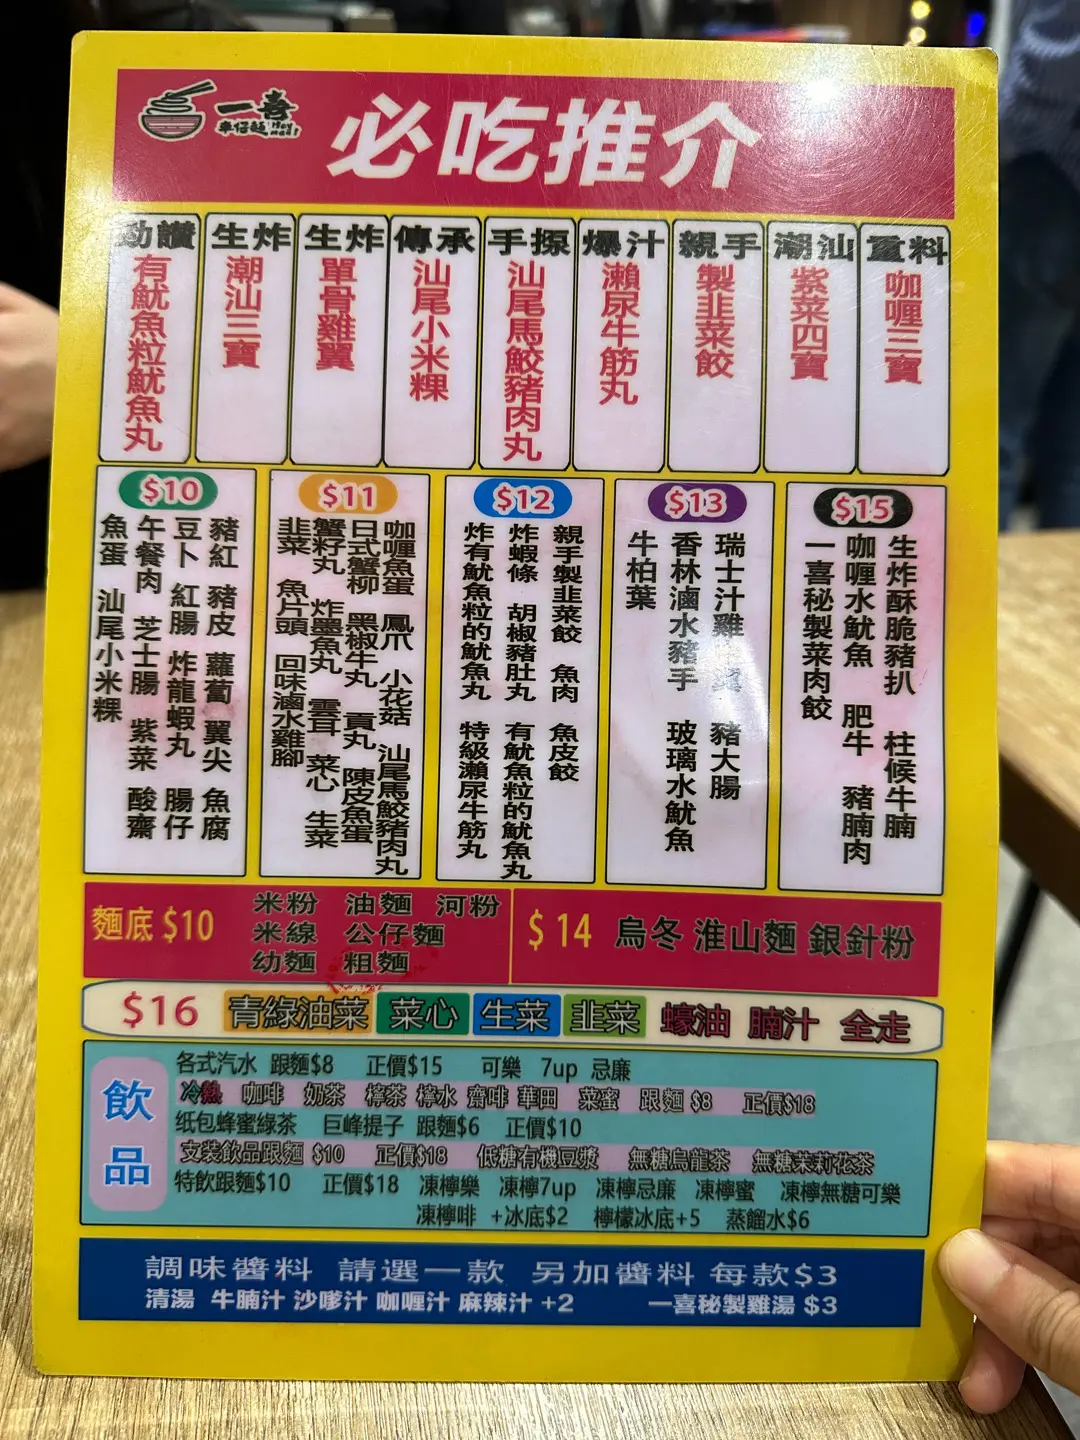 一喜
車仔麵
必吃推介
勁讚
有魷魚粒魷魚丸
生炸
潮汕三寶
生炸
單骨雞翼
傳承
汕尾小米粿
手捼
汕尾馬鮫豬肉丸
爆汁
瀨尿牛筋丸
親手
製韭菜餃
潮汕
紫菜四寶
重料
咖喱三寶
$10
豬紅 豬皮 蘿蔔 翼尖 魚腐
豆卜 紅腸 炸龍蝦丸 腸仔
午餐肉 芝士腸 紫菜 酸齋
魚蛋 汕尾小米粿
$11
咖喱魚蛋 鳳爪 小花菇 汕尾馬鮫豬肉丸
日式蟹柳 黑椒牛丸 貢丸 陳皮魚蛋
蟹籽丸 炸墨魚丸 雲耳 菜心 生菜
韭菜 魚片頭 回味滷水雞腳
$12
親手製韭菜餃 魚肉 魚皮餃
炸蝦條 胡椒豬肚丸 有魷魚粒的魷魚丸
炸有魷魚粒的魷魚丸 特級瀨尿牛筋丸
$13
瑞士汁雞中翼 豬大腸
香林滷水豬手 玻璃水魷魚
牛柏葉
$15
生炸酥脆豬扒 柱候牛腩
咖喱水魷魚 肥牛 豬腩肉
一喜秘製菜肉餃
麵底 $10
米粉 油麵 河粉
米線 公仔麵
幼麵 粗麵
$ 14 烏冬 淮山麵 銀針粉
$16 青綠油菜 菜心 生菜 韭菜 蠔油 腩汁 全走
飲品
各式汽水 跟麵$8 正價$15 可樂 7up 忌廉
冷熱 咖啡 奶茶 檸茶 檸水 齋啡 華田 菜蜜 跟麵 $8 正價$18
纸包蜂蜜綠茶 巨峰提子 跟麵$6 正價$10
支裝飲品跟麵 $10 正價$18 低糖有機豆漿 無糖烏龍茶 無糖茉莉花茶
特飲跟麵$10 正價$18 凍檸樂 凍檸7up 凍檸忌廉 凍檸蜜 凍檸無糖可樂
凍檸啡 +冰底$2 檸檬冰底+5 蒸餾水$6
調味醬料 請選一款 另加醬料 每款$3
清湯 牛腩汁 沙嗲汁 咖喱汁 麻辣汁 +2 一喜秘製雞湯 $3